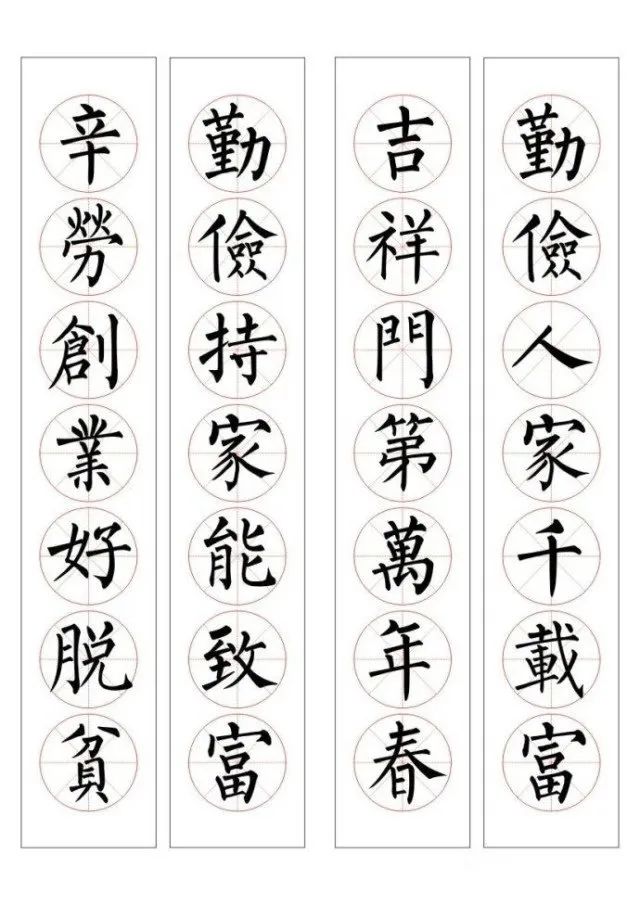 勤儉人家千載富
吉祥門第萬年春
勤儉持家能致富
辛勞創業好脱貧